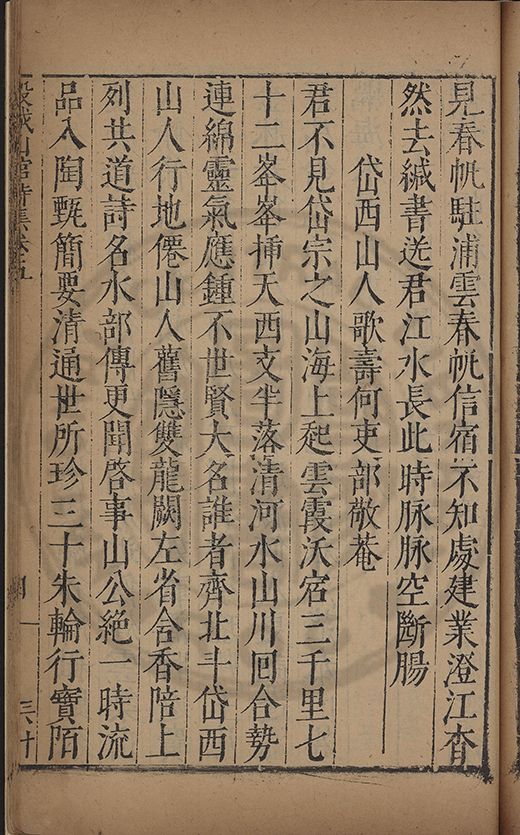 見春帆駐浦雲春帆信宿不知處建業澄江杳
然去緘書送君江水長此時脉脉空斷腸
岱西山人歌壽何吏部敬菴
君不見岱宗之山海上起雲霞沃宕三千里七
十二峯峯揷天西支半落清河水山川回合勢
連綿靈氣應鍾不世賢大名誰者齊北斗岱西
山人行地僊山人舊隱雙龍闕左省含香陪上
列共道詩名水部傳更聞啓事山公絶一時流
品入陶甄簡要清通世所珍三十朱輪行寶陌
山館詩集卷五
三十